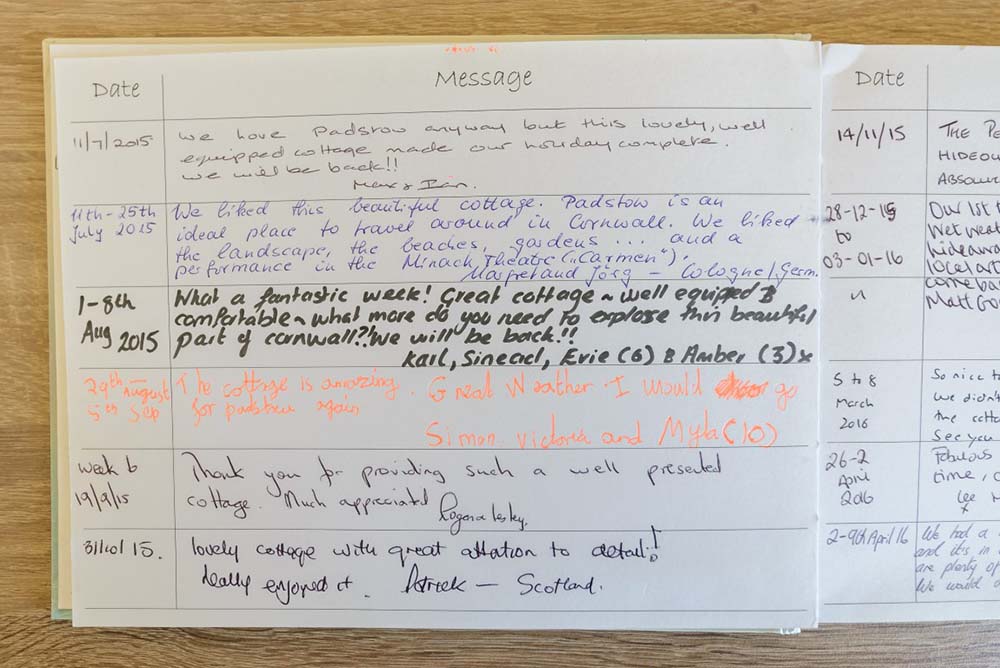 Date
Message
11/7/2015
We have Padstow anyway but this lovely, well
equipped cottage made our holiday complete.
we will be back!!
11th - 25th
July 2015
We liked this beautiful cottage. Padstow is an
ideal place to travel around in Cornwall. We liked
the landscape, the beaches, gardens ... and a
performance in the Minack Theatre ("Carmen").
Margret and Jörg - Cologne/Germ.
1-8th
Aug 2015
What a fantastic week! Great cottage ~ well equipped &
comfortable ~ what more do you need to explose this beautiful
part of cornwall?? We will be back!!
Karl, Sinead, Evie (6) & Amber (3) x
29th August
5th Sep
The cottage is amazing. Great Weather. I would go
for padstow again
Simon victoria and Myla (10)
week 6
19/9/15
Thank you for providing such a well presented
cottage. Much appreciated
31/10/15.
lovely cottage with great attation to detail!
Really enjoyed it. - Scotland.
Date
14/11/15
THE PE
HIDEOU
ABSOLU
28-12-15
to
03-01-16
Our 1st t
Wet weat
hideawa
local art
come ba
Matt
5 to 8
March
2016
So nice t
we didn't
the cotta
See you
26-2
April
2016
Fabulous
time, c
Lee
2-9th April 16
We had a
and it's in
are plenty of
We would